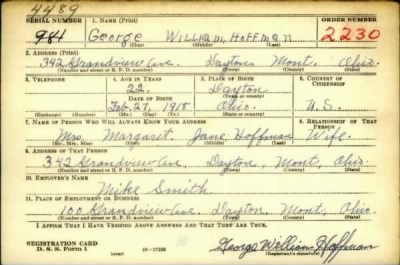 4489
SERIAL NUMBER 1. NAME (Print) ORDER NUMBER
984 George William Hoffman 2230
(First) (Middle) (Last)
2. ADDRESS (Print)
342 Grandview Ave. Dayton Mont. Ohio.
(Number and street or R. F. D. number) (Town) (County) (State)
3. TELEPHONE 4. AGE IN YEARS 5. PLACE OF BIRTH 6. COUNTRY OF CITIZENSHIP
22 Dayton
DATE OF BIRTH (Town or county)
Feb. 27, 1918 Ohio. U.S.
(Exchange) (Number) (Mo.) (Day) (Yr.) (State or country)
7. NAME OF PERSON WHO WILL ALWAYS KNOW YOUR ADDRESS 8. RELATIONSHIP OF THAT PERSON
Mrs. Margaret Jane Hoffman Wife.
(Mr., Mrs., Miss) (First) (Middle) (Last)
9. ADDRESS OF THAT PERSON
342 Grandview Ave. Dayton, Mont, Ohio.
(Number and street or R. F. D. number) (Town) (County) (State)
10. EMPLOYER'S NAME
Mike Smith
11. PLACE OF EMPLOYMENT OR BUSINESS
100 Grandview Ave. Dayton, Mont, Ohio.
(Number and street or R. F. D. number) (Town) (County) (State)
I AFFIRM THAT I HAVE VERIFIED ABOVE ANSWERS AND THAT THEY ARE TRUE.
REGISTRATION CARD
D. S. S. Form 1 (over) George William Hoffman
(Registrant's signature)